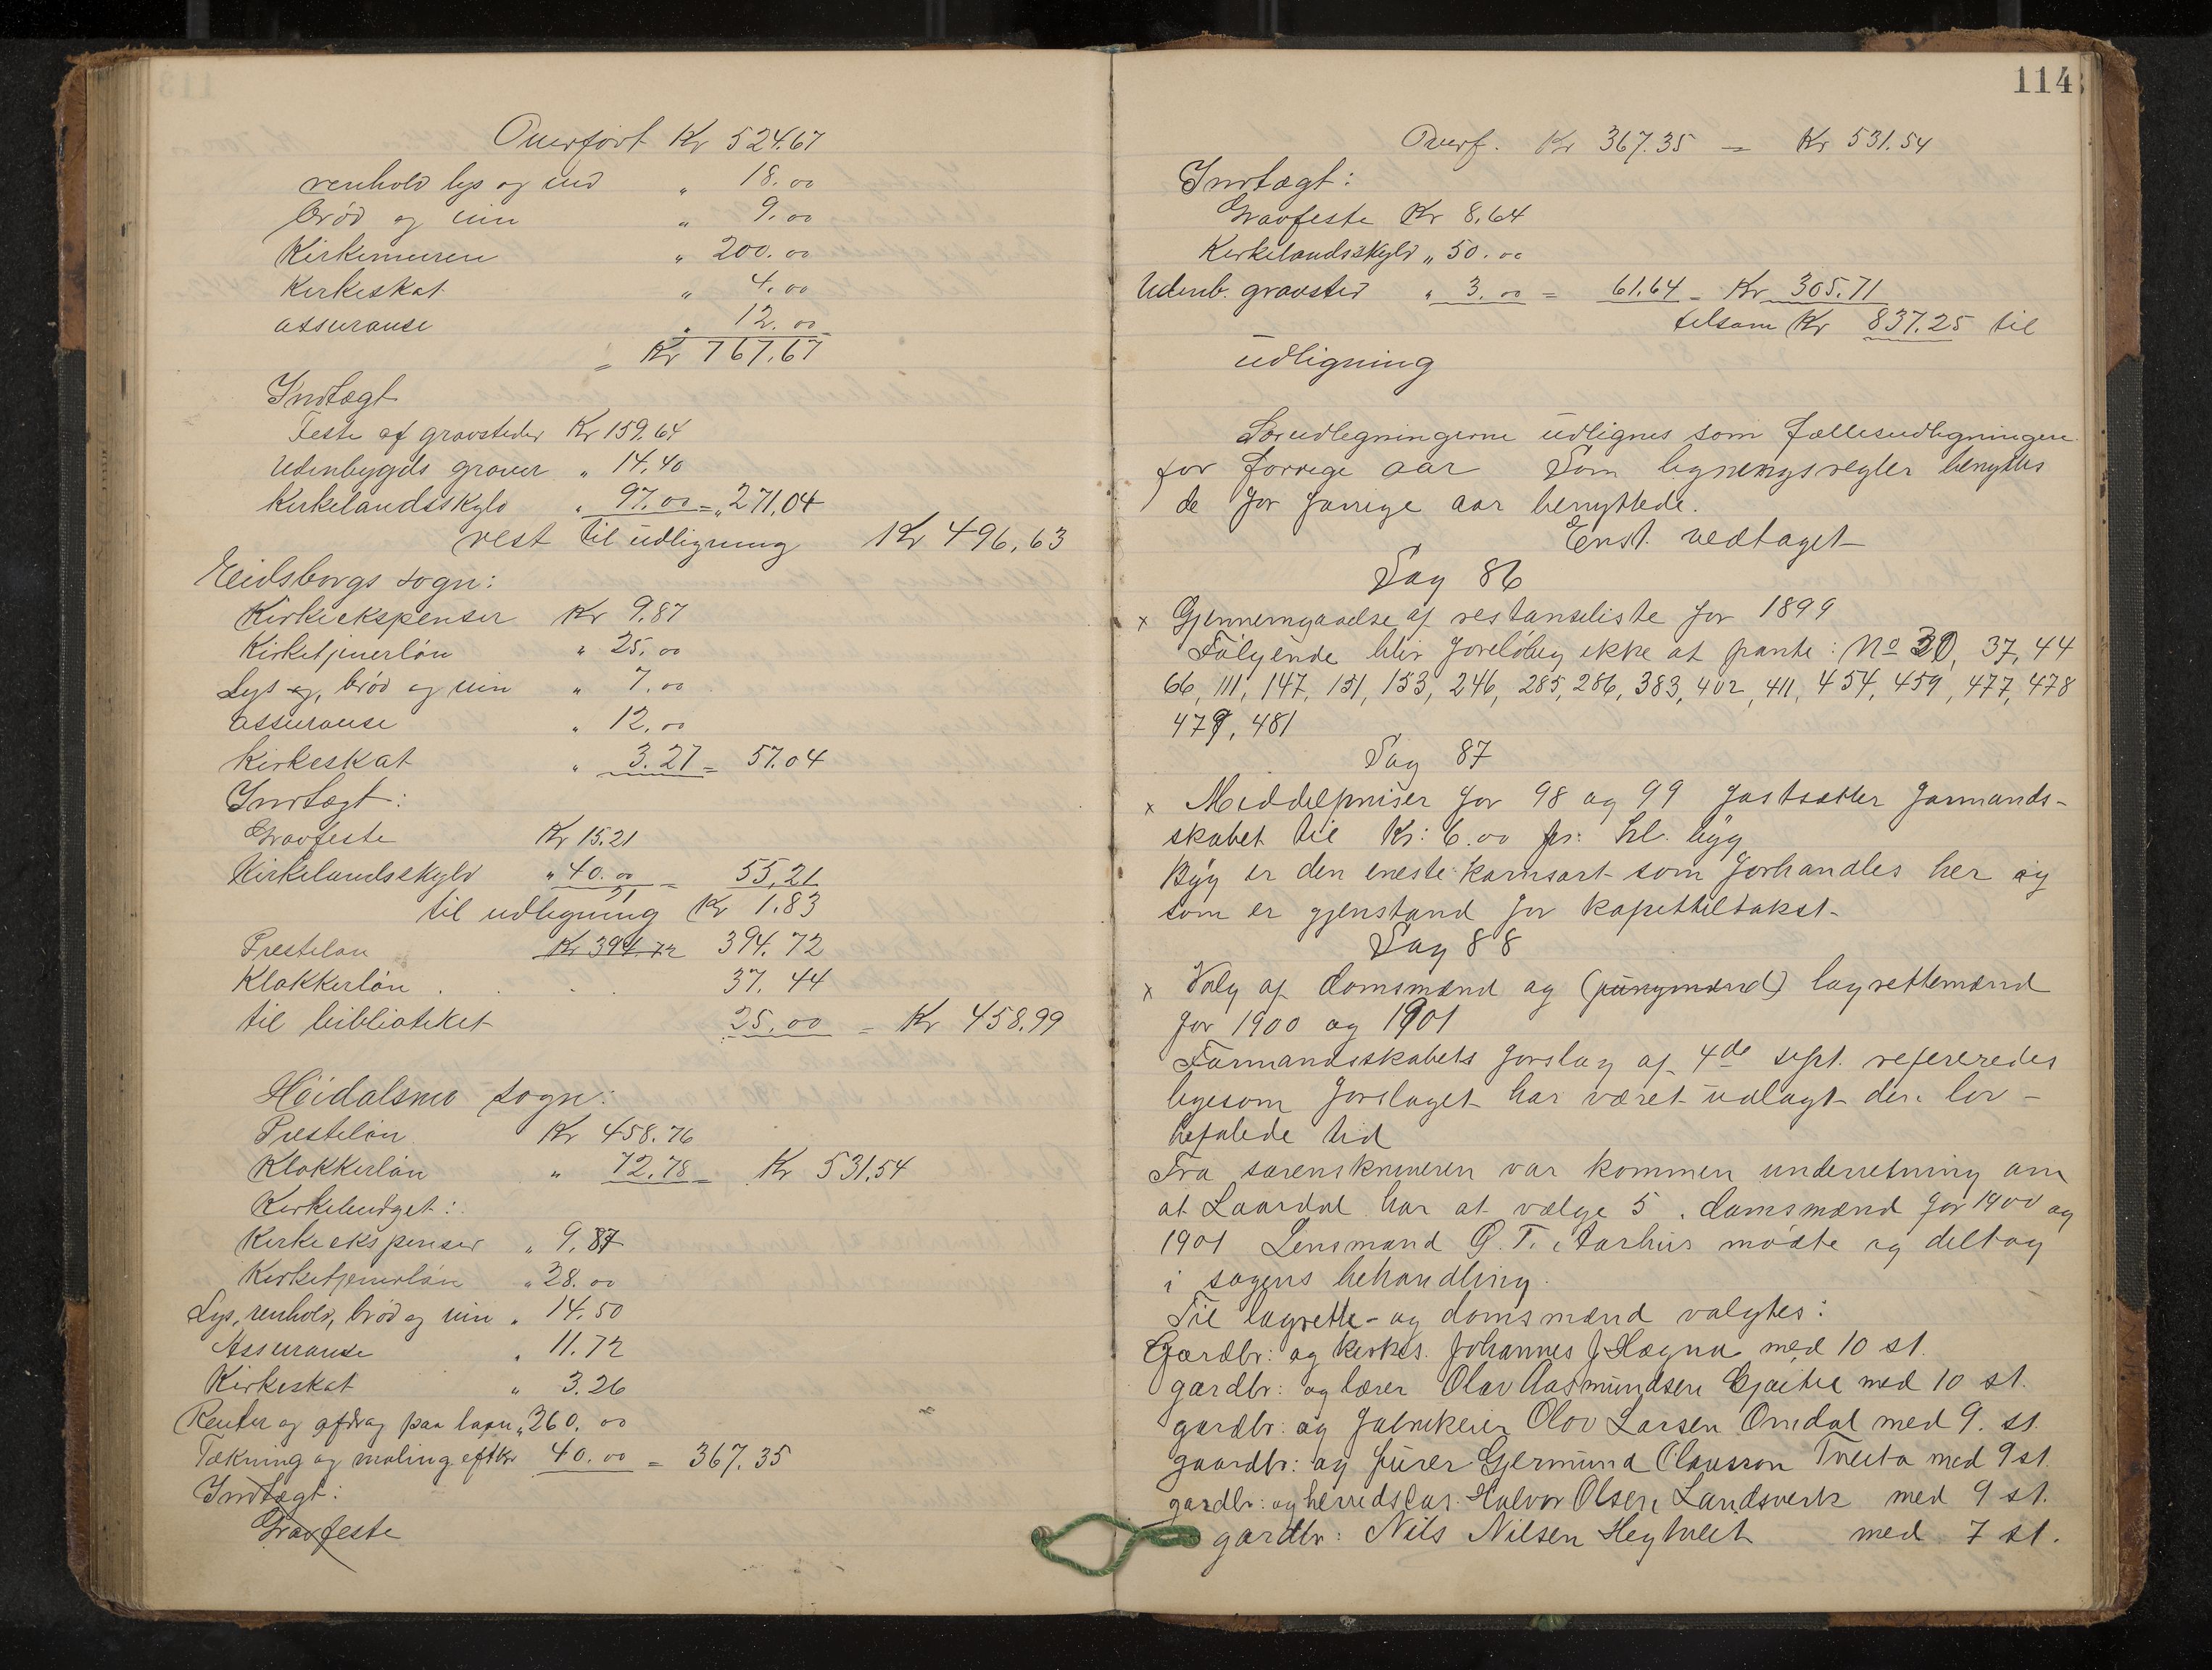 Overført Kr 524.67
renhold lys og ved " 18.00
brød og vin " 9.00
Kirkemuren " 200.00
Kirkeskat " 4.00
assuranse " 12.00
= Kr 767.67
Indtægt
Feste af gravsteder Kr 159.64
Udenbygds graver " 14.40
Kirkelandsskyld " 97.00 = " 271.04
rest til udligning Kr 496.63
Eidsborgs sogn:
Kirkeekspenser Kr 9.87
Kirketjenerløn " 25.00
Lys og, brød og vin " 7.00
assuranse " 12.00
Kirkeskat " 3.27 = 57.04
Indtægt:
Gravfeste Kr 15.21
Kirkelandsskyld " 40.00 = 55.21
til udligning Kr 1.83
Presteløn Kr 394.72 394.72
Klokkerløn 37.44
til biblioteket 25.00 = Kr 458.99
Høidalsmo sogn:
Presteløn Kr 458.76
Klokkerløn " 72.78 = Kr 531.54
Kirkebudget:
Kirkeekspenser " 9.87
Kirketjenerløn " 28.00
Lys, renhold, brød og vin " 14.50
Assuranse " 11.72
Kirkeskat " 3.26
Renter og afdrag paa laan " 260.00
Tækning og maling af tkr 40.00 = 367.35
Indtægt:
Gravfeste
114
Overf. Kr 367.35 = Kr 531.54
Indtægt:
Gravfeste Kr 8.64
Kirkelandsskyld " 50.00
Udenb. gravsted " 3.00 = 61.64 = Kr 305.71
tilsam Kr 837.25 til
udligning
Særudlegningerne udlignes som fællesudligningen
for forrige aar Som ligningsregler benyttes
de for forrige aar benyttede.
Enst. vedtaget
Sag 86
x Gjennemgaaelse af restanseliste for 1899
Følgende blir foreløbig ikke at pante: No 30, 37, 44
66, 111, 147, 151, 153, 246, 285, 286, 383, 402, 411, 454, 459, 477, 478
479, 481
Sag 87
x Middelpriser for 98 og 99 fastsætter formands-
skabet til Kr: 6.00 pr. hl. byg
Byg er den eneste kornsort som forhandles her og
som er gjenstand for kapitteltakst.
Sag 88
x Valg af domsmænd og (jurymænd) lagrettemænd
for 1900 og 1901
Formandsskabets forslag af 4de sept. refereredes
ligesom forslaget har været udlagt den lov-
befalede tid
Fra sorenskriveren var kommen underretning om
at Laardal har at vælge 5 domsmænd for 1900 og
1901 Lensmand G. T. Aarhus mødte og deltog
i sagens behandling.
Til lagrette- og domsmænd valgtes:
Gardbr: og kirkes. Johannes J Hægna med 10 st.
gardbr: og lærer Olav Aasmundsen Gjøitil med 10 st.
gardbr: og fabrikeier Olov Larsen Omdal med 9. st.
gaardbr: og furer Gjermund Olavsson Tveito med 9 st.
gardbr: og herredskas. Halvor Olsen Landsverk med 9 st.
gardbr: Nils Nilsen Hegtveit med 7 st.